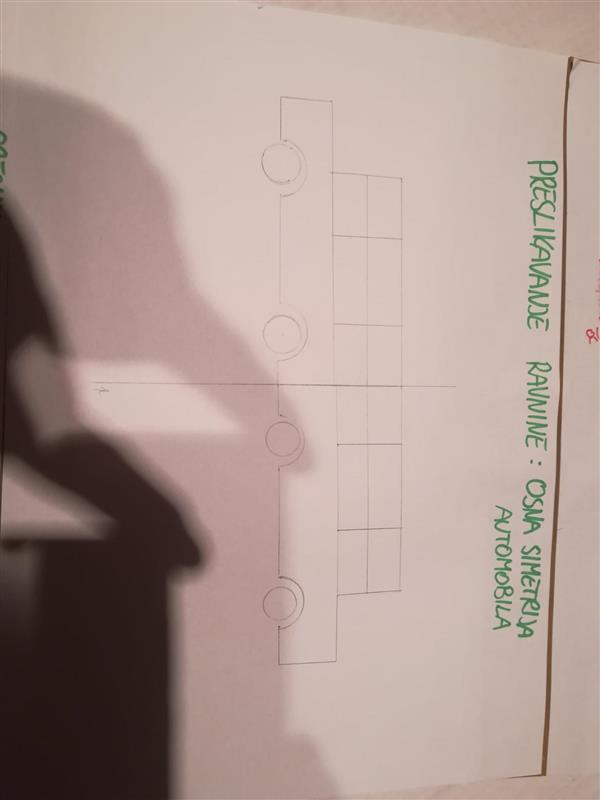 PRESLIKAVANJE RAVNINE: OSNA SIMETRIJA
AUTOMOBILA